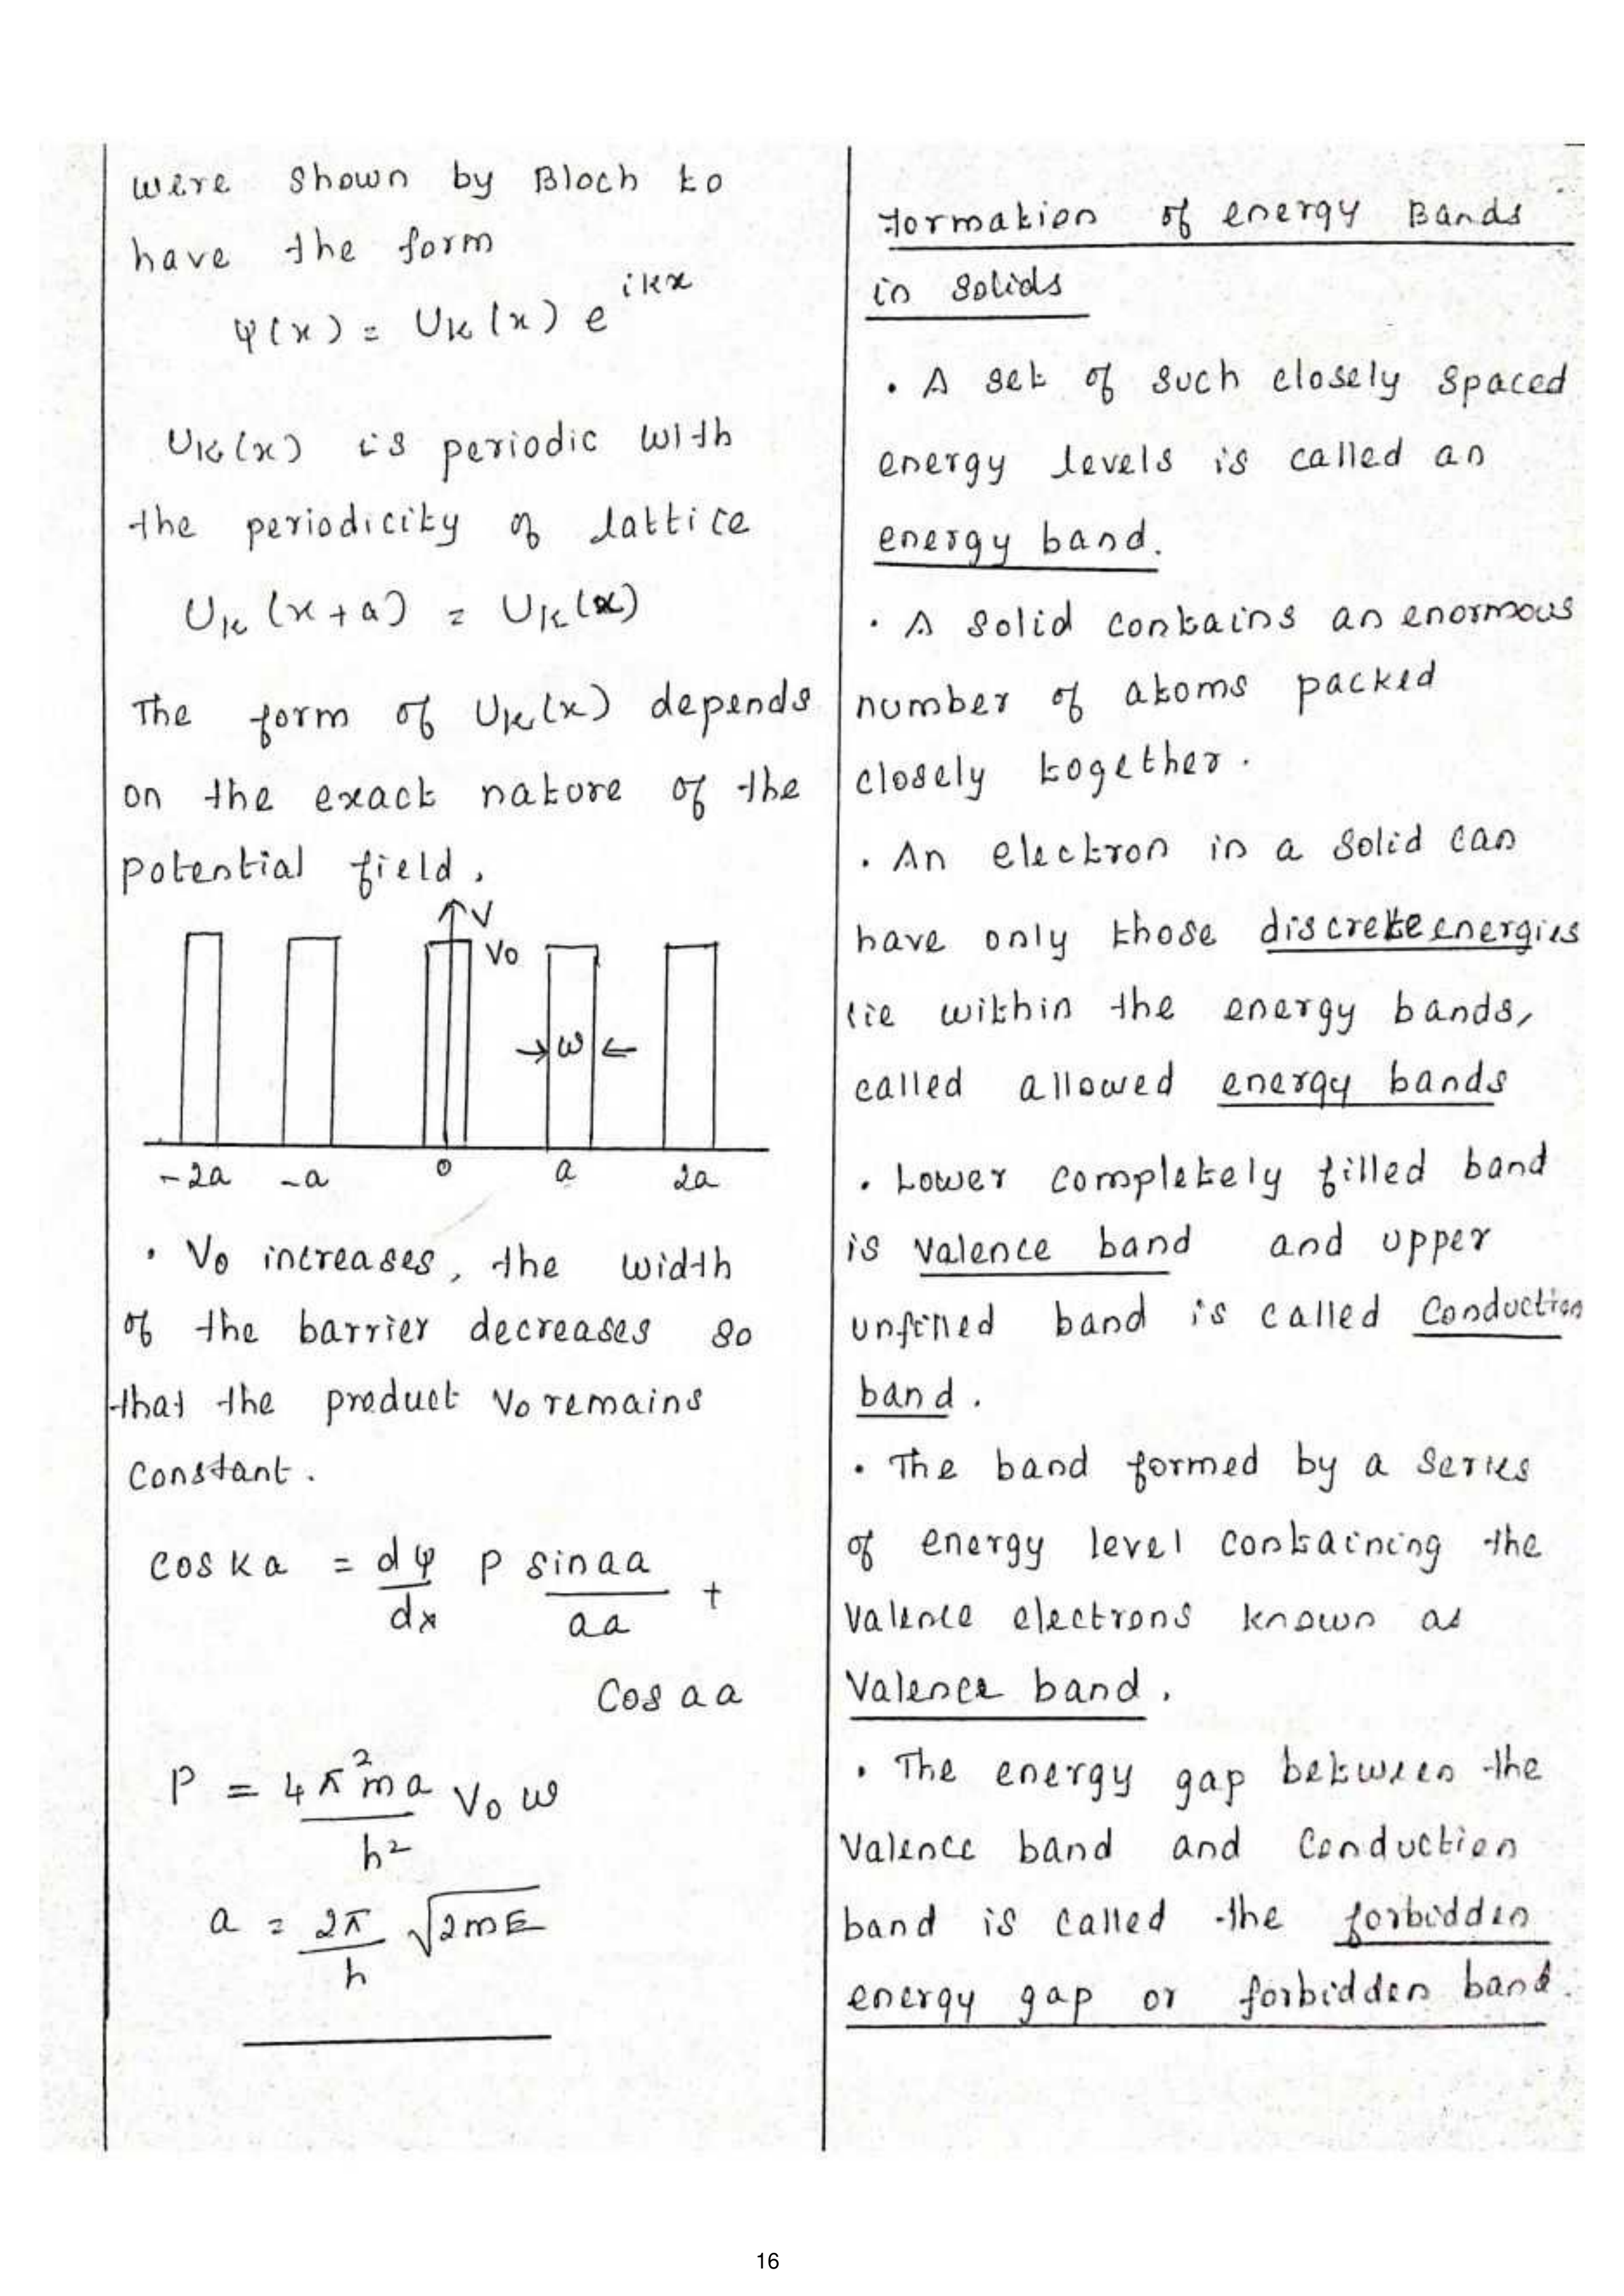 were shown by Bloch to
have the form
ψ(x) = Uk(x) e^ikx
Uk(x) is periodic with
the periodicity of lattice
Uk (x+a) = Uk(x)
The form of Uk(x) depends
on the exact nature of the
potential field.
V
V0
→ω←
-2a -a 0 a 2a
• V0 increases, the width
of the barrier decreases so
that the product V0 remains
constant.
cos ka = dψ/dx P sin aa/aa +
cos aa
P = 4π²ma/h² V0 ω
a = 2π/h √2mE
Formation of energy Bands
in solids
• A set of such closely spaced
energy levels is called an
energy band.
• A solid contains an enormous
number of atoms packed
closely together.
• An electron in a solid can
have only those discrete energies
lie within the energy bands,
called allowed energy bands
• Lower completely filled band
is valence band and upper
unfilled band is called conduction
band.
• The band formed by a series
of energy level containing the
valence electrons known as
valence band.
• The energy gap between the
valence band and conduction
band is called the forbidden
energy gap or forbidden band.
16